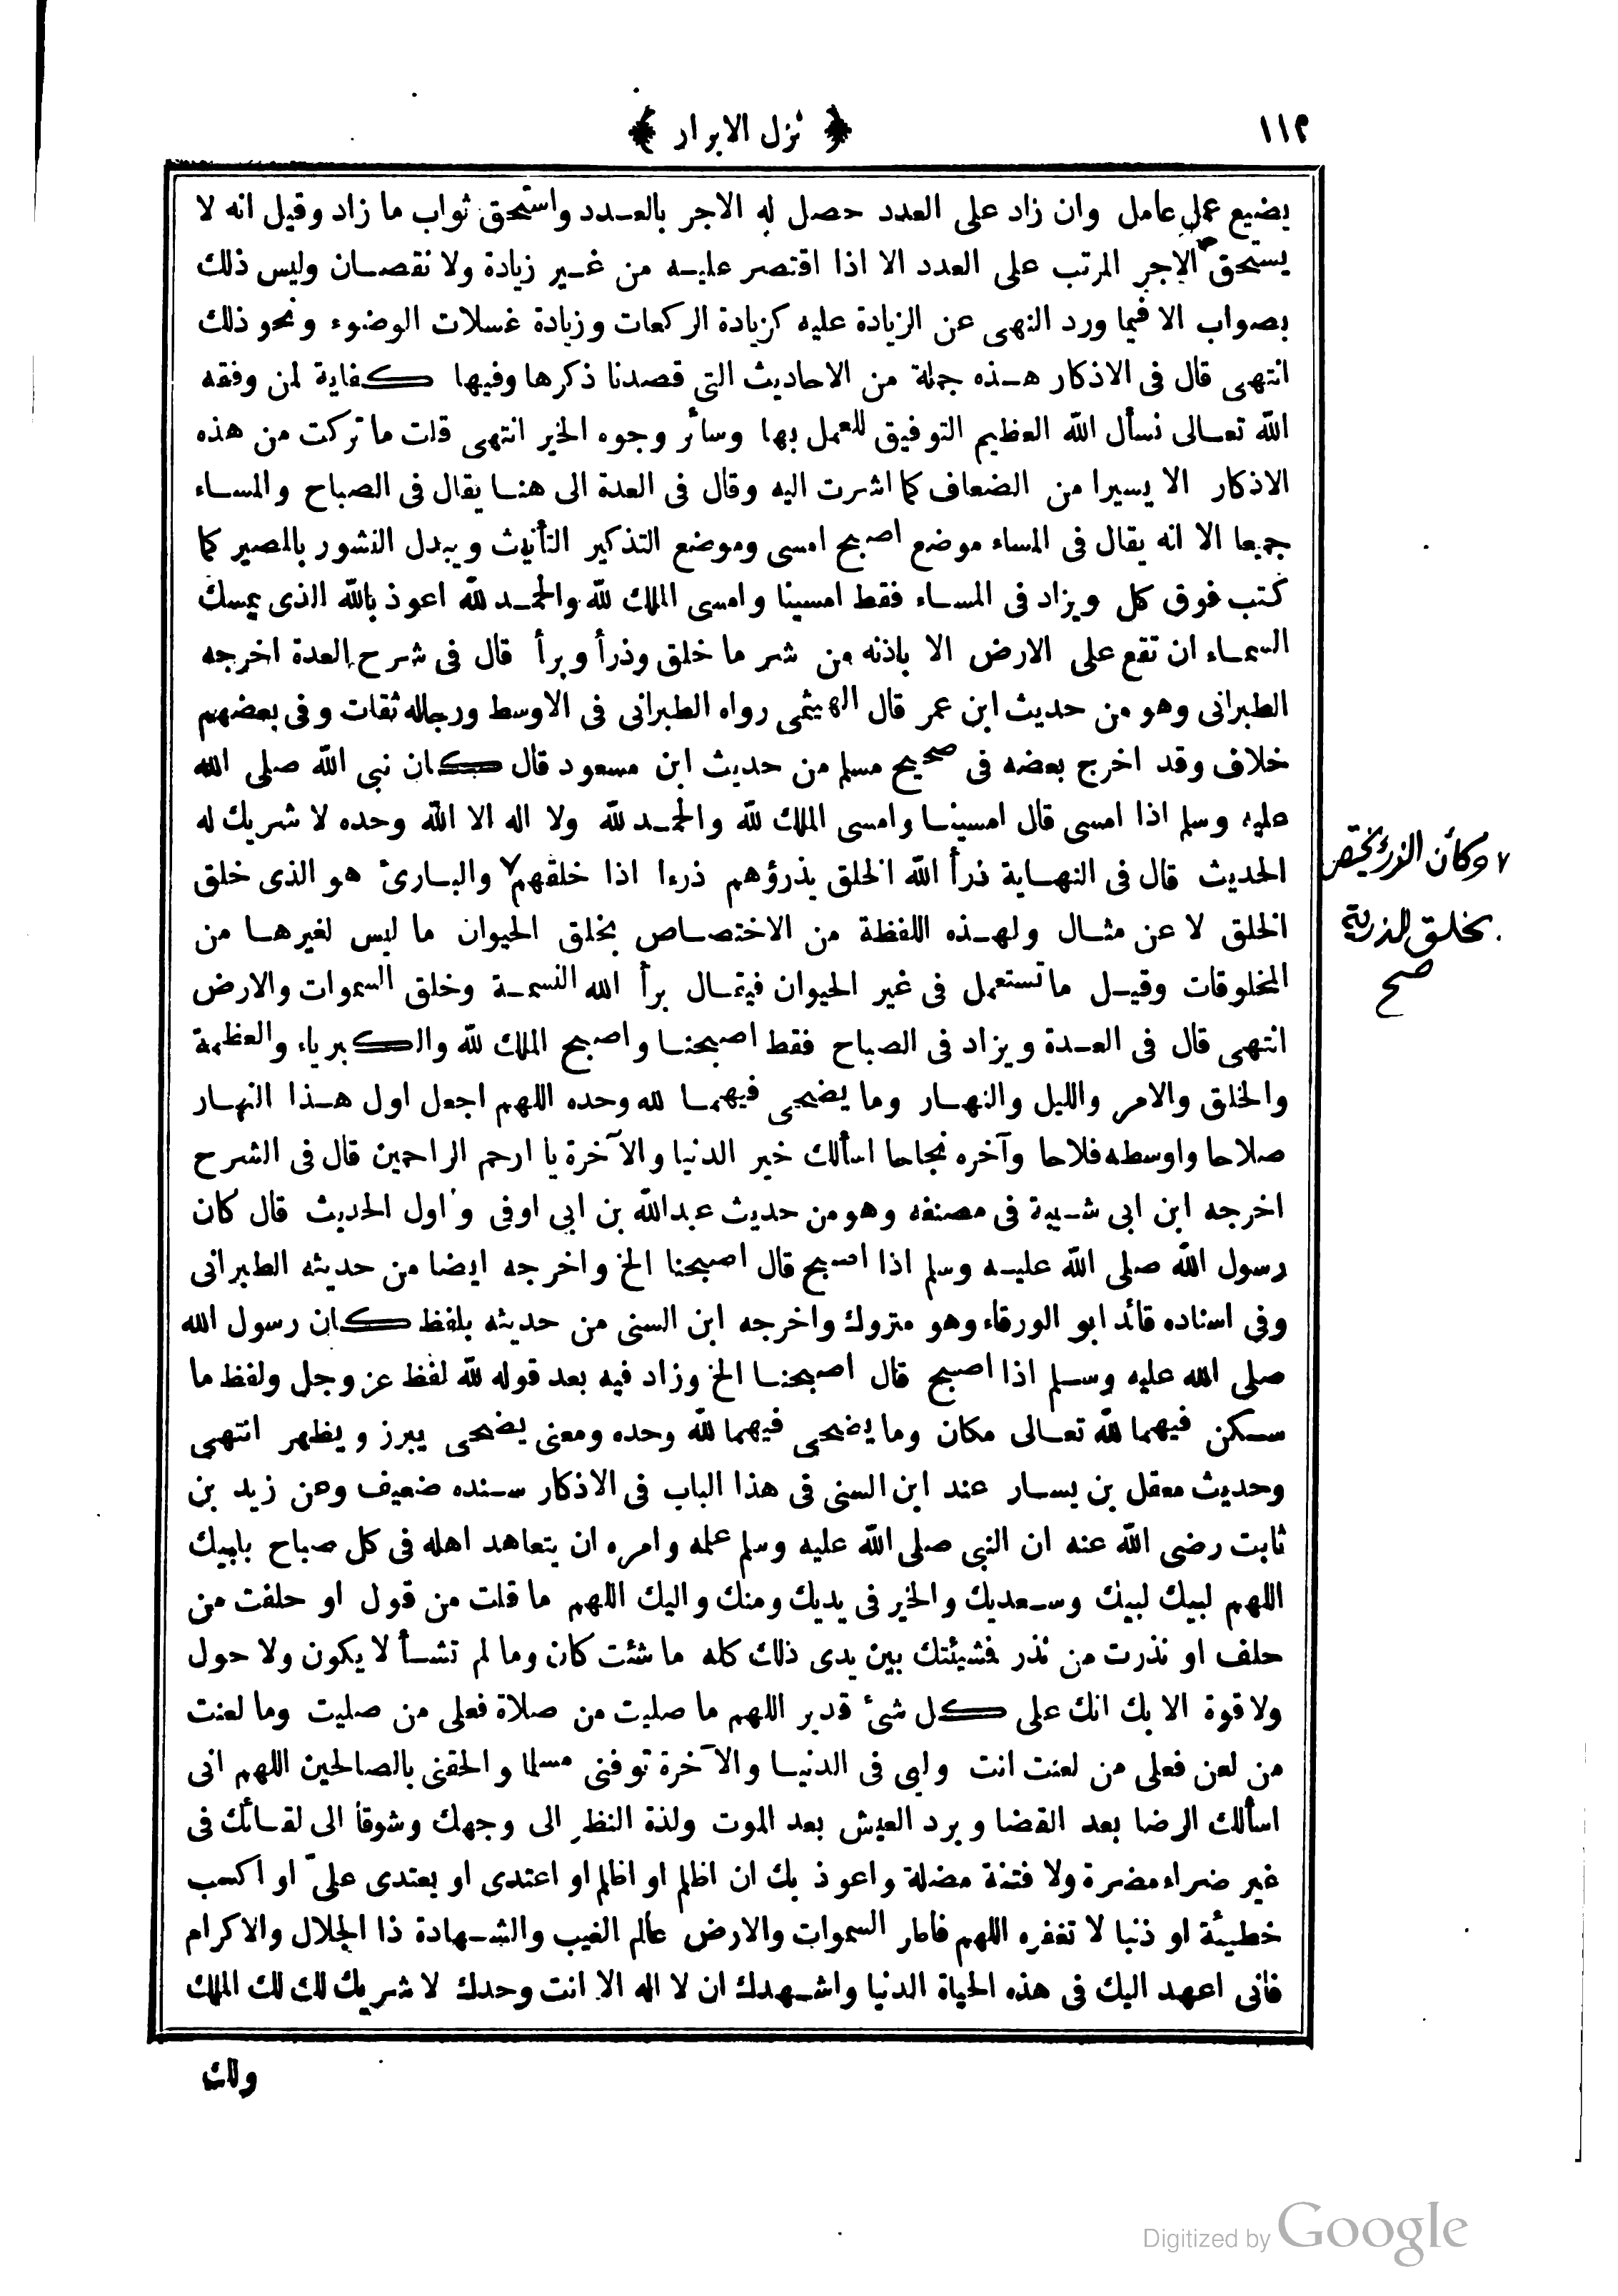 ١١٢
﴿ نزل الابرار ﴾
يضيع عمل عامل وان زاد على العدد حصل له الاجر بالعدد واستحق ثواب ما زاد وقيل انه لا
يستحق الاجر المرتب على العدد الا اذا اقتصر عليه من غير زيادة ولا نقصان وليس ذلك
بصواب الا فيما ورد النهى عن الزيادة عليه كزيادة الركعات وزيادة غسلات الوضوء ونحو ذلك
انتهى قال فى الاذكار هذه جملة من الاحاديث التى قصدنا ذكرها وفيها كفاية لمن وفقه
الله تعالى نسأل الله العظيم التوفيق للعمل بها وسائر وجوه الخير انتهى قلت ما تركت من هذه
الاذكار الا يسيرا من الضعاف كما اشرت اليه وقال فى العدة الى هنا يقال فى الصباح والمساء
جميعا الا انه يقال فى المساء موضع اصبح امسى وموضع التذكير التأنيث ويبدل النشور بالمصير كما
كتب فوق كل ويزاد فى المساء فقط امسينا وامسى الملك لله والحمد لله اعوذ بالله الذى يمسك
السماء ان تقع على الارض الا باذنه من شر ما خلق وذرأ وبرأ قال فى شرح العدة اخرجه
الطبرانى وهو من حديث ابن عمر قال الهيثمى رواه الطبرانى فى الاوسط ورجاله ثقات وفى بعضهم
خلاف وقد اخرج بعضه فى صحيح مسلم من حديث ابن مسعود قال كان نبى الله صلى الله
عليه وسلم اذا امسى قال امسينا وامسى الملك لله والحمد لله ولا اله الا الله وحده لا شريك له
الحديث قال فى النهاية ذرأ الله الخلق يذرؤهم ذرءا اذا خلقهم ٧ والبارئ هو الذى خلق
الخلق لا عن مثال ولهذه اللفظة من الاختصاص بخلق الحيوان ما ليس لغيرها من
المخلوقات وقيل ما تستعمل فى غير الحيوان فيقال برأ الله النسمة وخلق السموات والارض
انتهى قال فى العدة ويزاد فى الصباح فقط اصبحنا واصبح الملك لله والكبرياء والعظمة
والخلق والامر والليل والنهار وما يضحى فيهما لله وحده اللهم اجعل اول هذا النهار
صلاحا واوسطه فلاحا وآخره نجاحا اسألك خير الدنيا والآخرة يا ارحم الراحمين قال فى الشرح
اخرجه ابن ابى شيبة فى مصنفه وهو من حديث عبدالله بن ابى اوفى واول الحديث قال كان
رسول الله صلى الله عليه وسلم اذا اصبح قال اصبحنا الخ واخرجه ايضا من حديثه الطبرانى
وفى اسناده قائد ابو الورقاء وهو متروك واخرجه ابن السنى من حديثه بلفظ كان رسول الله
صلى الله عليه وسلم اذا اصبح قال اصبحنا الخ وزاد فيه بعد قوله لله لفظ عز وجل ولفظ ما
سكن فيهما لله تعالى مكان وما يضحى فيهما لله وحده ومعنى يضحى يبرز ويظهر انتهى
وحديث معقل بن يسار عند ابن السنى فى هذا الباب فى الاذكار سنده ضعيف وعن زيد بن
ثابت رضى الله عنه ان النبى صلى الله عليه وسلم علمه وامره ان يتعاهد اهله فى كل صباح بلبيك
اللهم لبيك لبيك وسعديك والخير فى يديك ومنك واليك اللهم ما قلت من قول او حلفت من
حلف او نذرت من نذر فمشيئتك بين يدى ذلك كله ما شئت كان وما لم تشأ لا يكون ولا حول
ولا قوة الا بك انك على كل شئ قدير اللهم ما صليت من صلاة فعلى من صليت وما لعنت
من لعن فعلى من لعنت انت وليى فى الدنيا والآخرة توفنى مسلما والحقنى بالصالحين اللهم انى
اسألك الرضا بعد القضا وبرد العيش بعد الموت ولذة النظر الى وجهك وشوقا الى لقائك فى
غير ضراء مضرة ولا فتنة مضلة واعوذ بك ان اظلم او اظلم او اعتدى او يعتدى علىّ او اكسب
خطيئة او ذنبا لا تغفره اللهم فاطر السموات والارض عالم الغيب والشهادة ذا الجلال والاكرام
فانى اعهد اليك فى هذه الحياة الدنيا واشهدك ان لا اله الا انت وحدك لا شريك لك لك الملك
ولك
٧ وكأن الذرء يختص
بخلق الذرية
صح
Digitized by Google